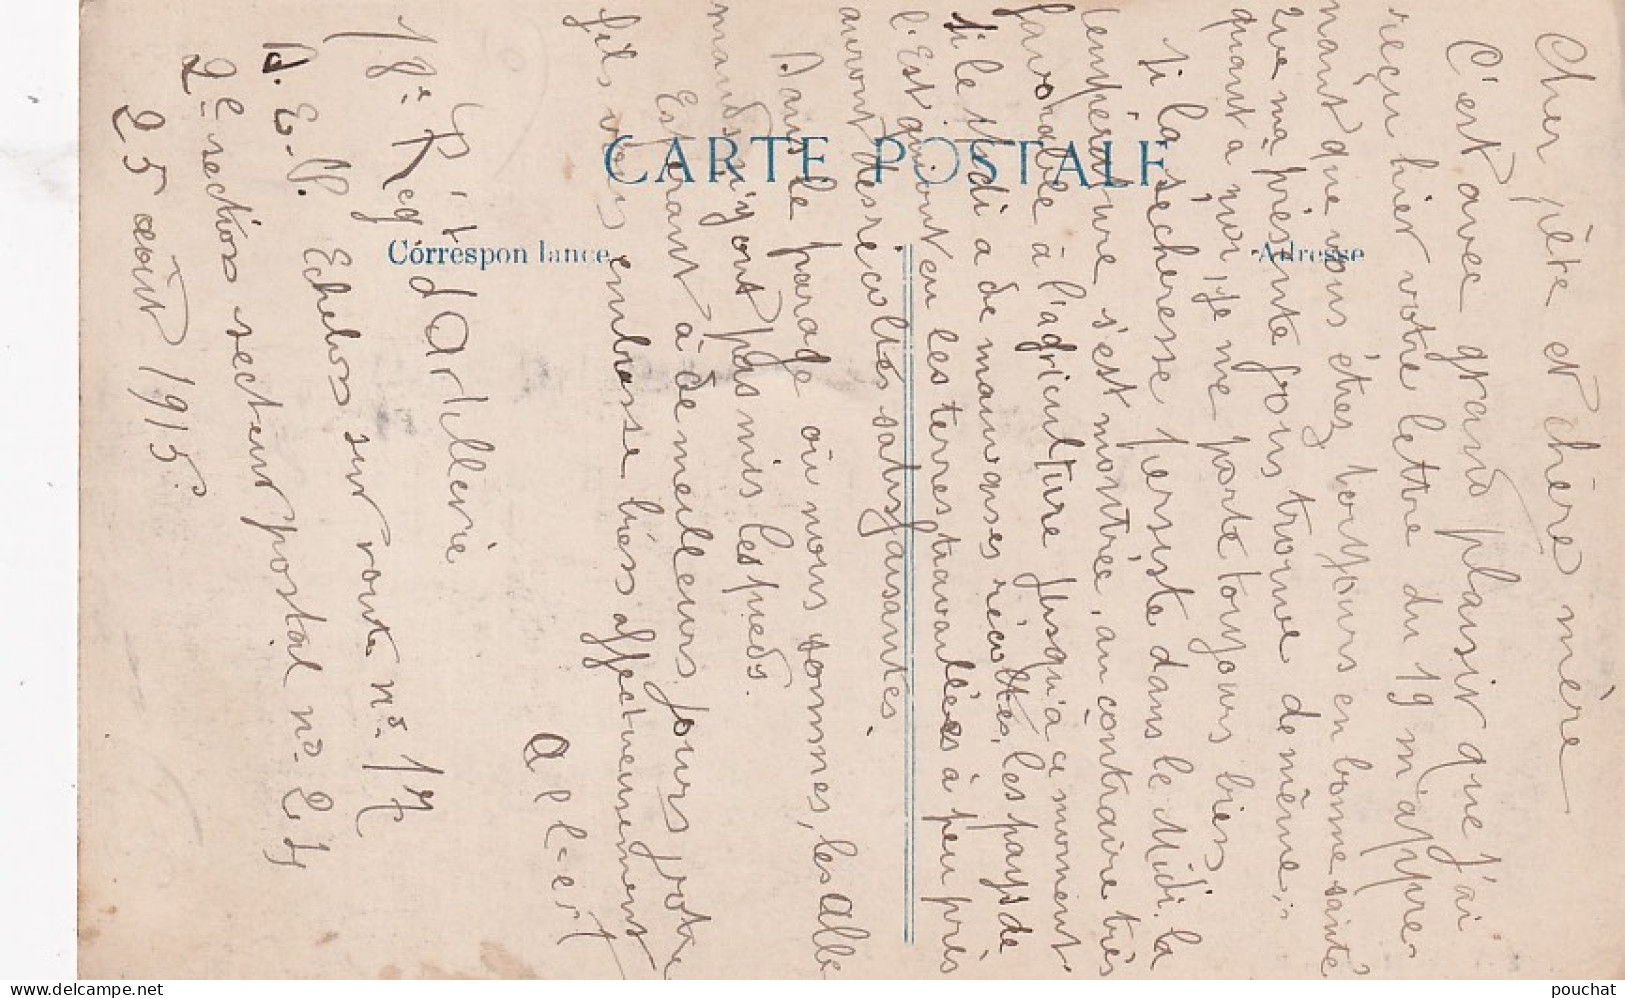 CARTE POSTALE
Correspondance
Adresse
Cher père et chère mère
C'est avec grand plaisir que j'ai
reçu hier votre lettre du 19 m'appre-
nant que vous êtes toujours en bonne santé
que ma présente vous trouve de même ;
quant à moi, je me porte toujours bien
Si la sécheresse persiste dans le Midi. la
température s'est montrée, au contraire très
favorable à l'agriculture jusqu'à ce moment.
Si le Midi a de mauvaises récoltes, les pays de
l'Est qui ont eu les terres travaillées à peu près
auront des récoltes satisfaisantes.
Dans le parage où nous sommes, les alle
mands n'y ont pas mis les pieds.
Espérant à de meilleurs jours votre
fils vous embrasse bien affectueusement
Albert
18e Rég't d'Artillerie
A. E.-P. Echelon sur route no. 17
2e section secteur postal no 24
25 août 1915
pouchat